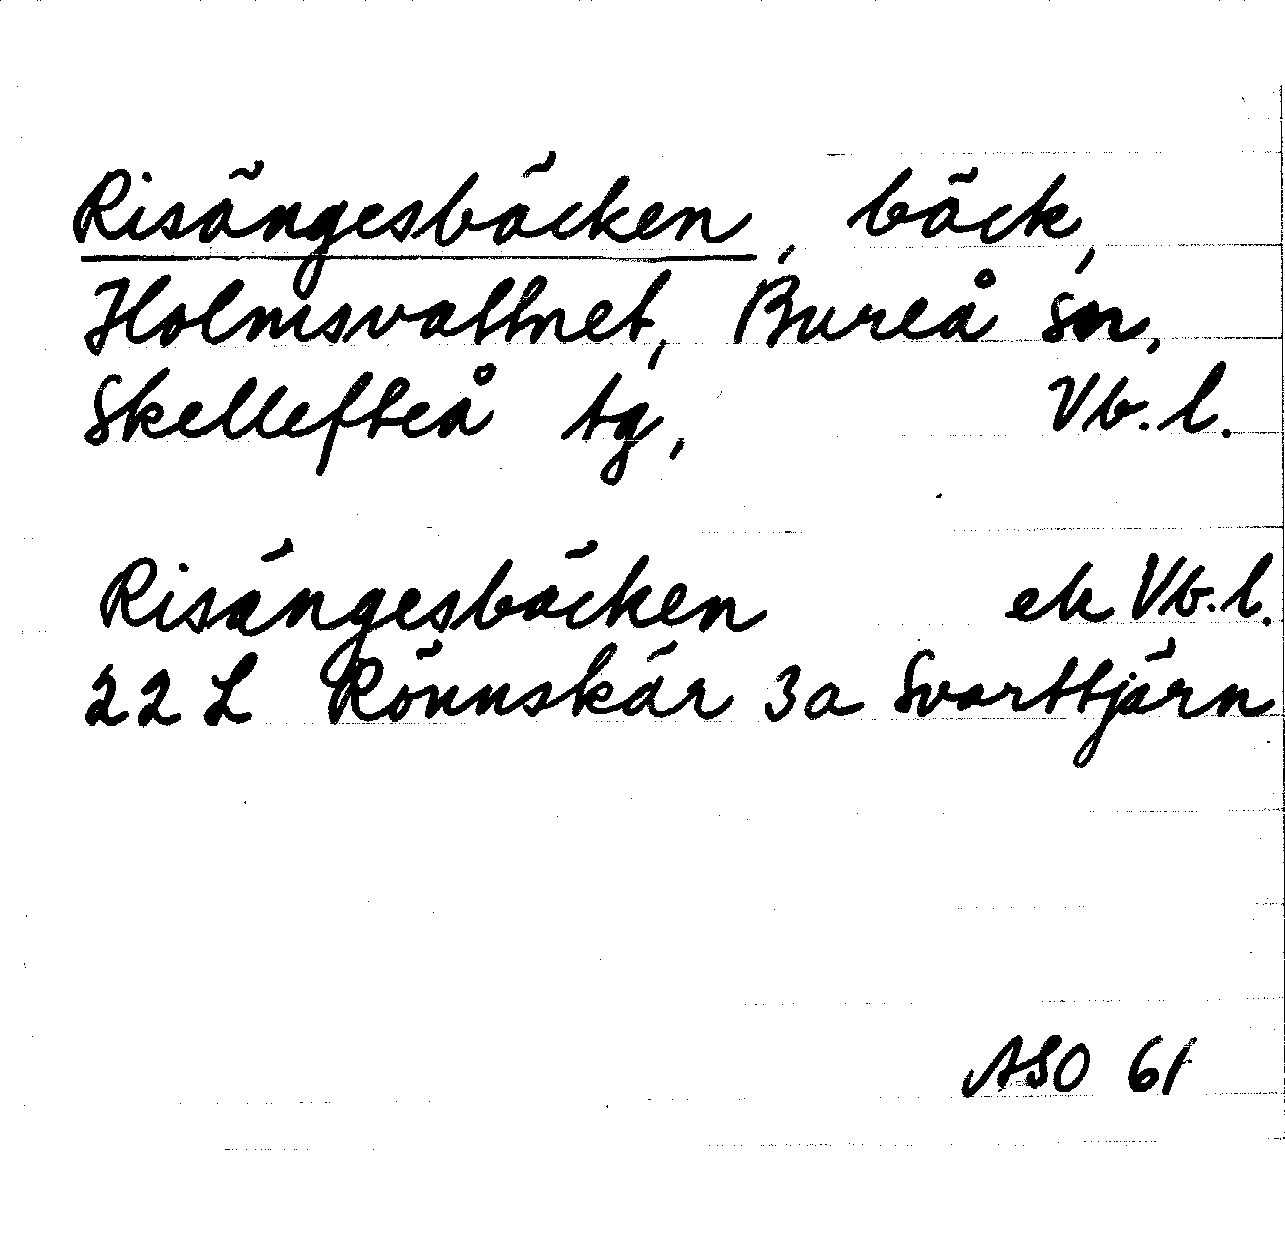 Risängesbäcken, bäck,
Holmsvattnet, Bureå sn,
Skellefteå tg, Vb. l.
Risängesbäcken ek Vb. l.
22 L Rönnskär 3a Svarttjärn
ASO 61